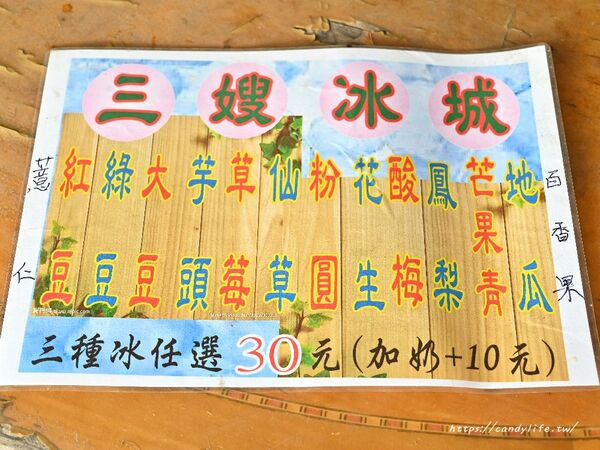 三嫂冰城
薏仁
紅豆
綠豆
大豆
芋頭
草莓
仙草
粉圓
花生
酸梅
鳳梨
芒果青
地瓜
百香果
三種冰任選30元(加奶+10元)
https://candylife.tw/